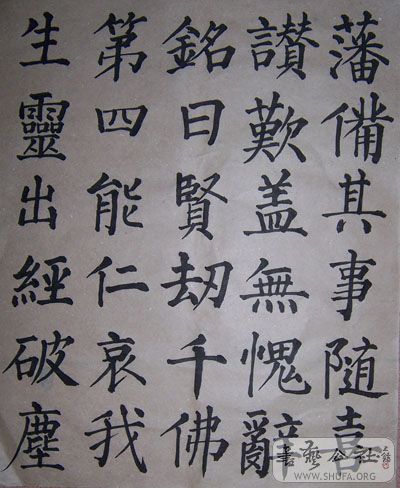 藩備其事隨喜
讚歎盖無愧辭
銘曰賢刧千佛
第四能仁哀我
生靈出經破塵
書藝公社
WWW.SHUFA.ORG